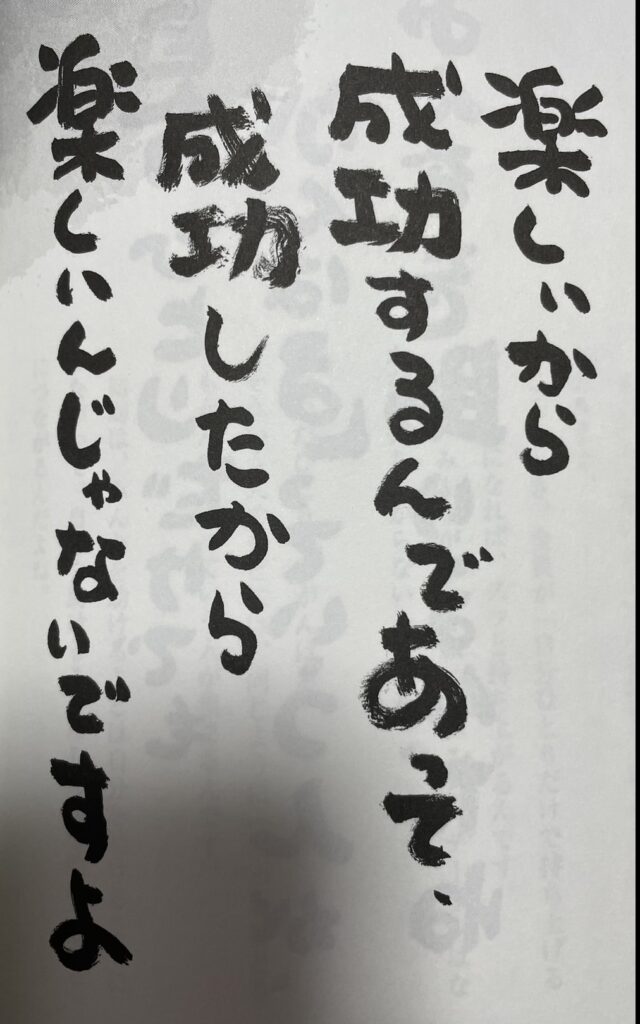 楽しいから
成功するんであって、
成功したから
楽しいんじゃないですよ